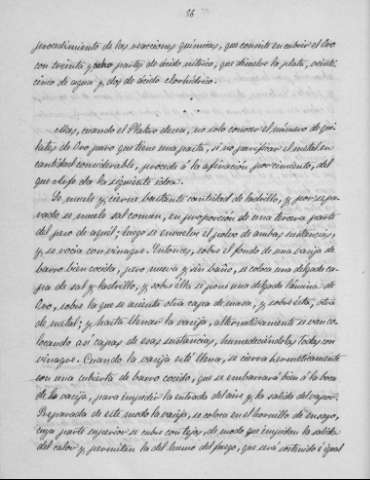 86
procedimiento de las reacciones químicas, que consiste en cubrir el Oro
con treinta y ocho partes de ácido nítrico, que disuelve la plata, veinti-
cinco de agua y dos de ácido clorhídrico.
Mas, cuando el Platero desea, no solo conocer el número de qui-
lates de Oro puro que tiene una pasta, si no purificar el metal en
cantidad considerable, procede á la afinación por cimiento, del
que Arfe da la siguiente idea.
Se muele y cierne bastante cantidad de ladrillo, y por sepa-
rado se muele sal común, en proporción de una tercera parte
del peso de aquél; luego se envuelve el polvo de ambas sustancias,
y se rocía con vinagre. Entonces, sobre el fondo de una vasija de
barro bien cocida, pero nueva y sin baño, se coloca una delgada ca-
pa de sal y ladrillo, y sobre ella se pone una delgada lámina de
Oro, sobre la que se asienta otra capa de masa, y sobre esta, otra
de metal; y hasta llenar la vasija, alternativamente se van co-
locando así capas de esas sustancias, humedeciéndolas todas con
vinagre. Cuando la vasija esté llena, se cierra herméticamente
con una cubierta de barro cocido, que se embarrará bien á la boca
de la vasija, para impedir la entrada del aire y la salida del vapor.
Preparada de este modo la vasija, se coloca en el hornillo de ensayo,
cuya parte superior se cubre con tejas, de modo que impidan la salida
del calor y permitan la del humo del fuego, que será sostenido é igual